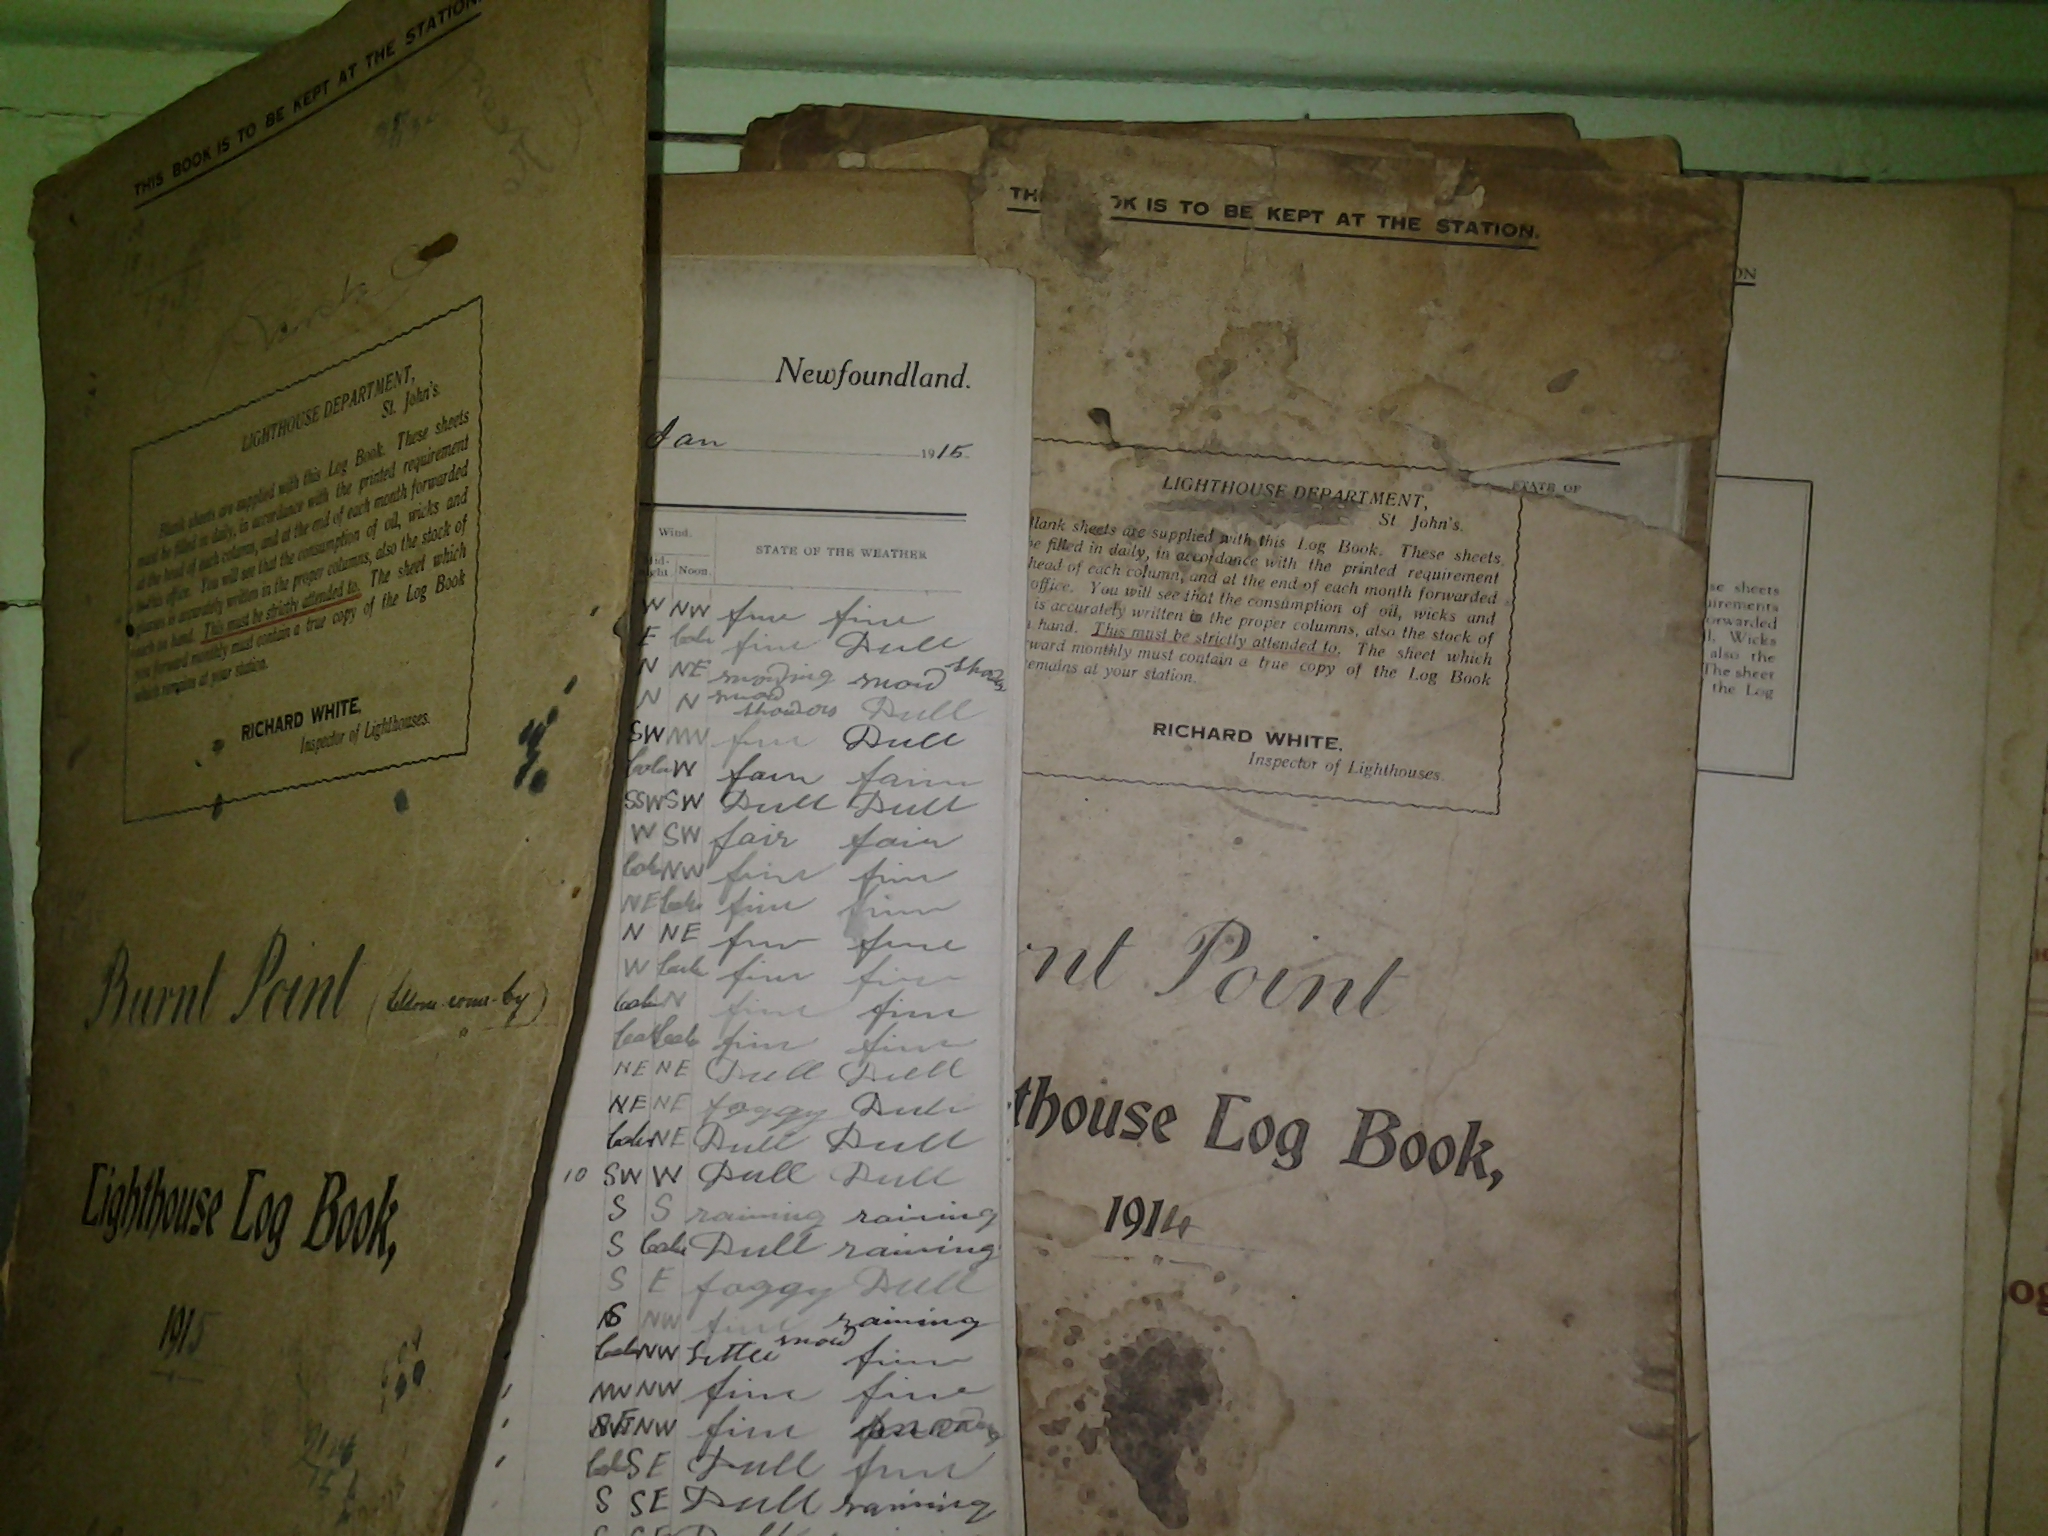 THIS BOOK IS TO BE KEPT AT THE STATION.
LIGHTHOUSE DEPARTMENT,
St. John's.
Blank sheets are supplied with this Log Book. These sheets
must be filled in daily, in accordance with the printed requirement
at the head of each column, and at the end of each month forwarded
to this office. You will see that the consumption of oil, wicks and
glasses is accurately written in the proper columns, also the stock of
each on hand. This must be strictly attended to. The sheet which
you forward monthly must contain a true copy of the Log Book
which remains at your station.
RICHARD WHITE,
Inspector of Lighthouses.
Burnt Point
Lighthouse Log Book,
1915
Newfoundland.
Jan 1915.
Wind.
Noon. STATE OF THE WEATHER
W NW fine fine
E fine Dull
N NE snowing snow
N N snow
Dull
SW NW fine Dull
W fair fair
SSW SW Dull Dull
W SW fair fair
NW fine fine
NE fine fine
N NE fine fine
W fine fine
N fine fine
fine fine
NE NE Dull Dull
NE NE foggy Dull
NE Dull Dull
10 SW W Dull Dull
S S raining raining
S Dull raining
S E foggy Dull
S NW fine raining
NW little snow fine
NW NW fine fine
NW fine
SE Dull fine
S SE Dull raining
OK IS TO BE KEPT AT THE STATION.
STATE OF
LIGHTHOUSE DEPARTMENT,
St. John's.
Blank sheets are supplied with this Log Book. These sheets
be filled in daily, in accordance with the printed requirement
head of each column, and at the end of each month forwarded
office. You will see that the consumption of oil, wicks and
is accurately written in the proper columns, also the stock of
hand. This must be strictly attended to. The sheet which
ward monthly must contain a true copy of the Log Book
remains at your station.
RICHARD WHITE,
Inspector of Lighthouses.
nt Point
thouse Log Book,
1914
ON
se sheets
uirements
orwarded
l, Wicks
also the
The sheet
the Log
og